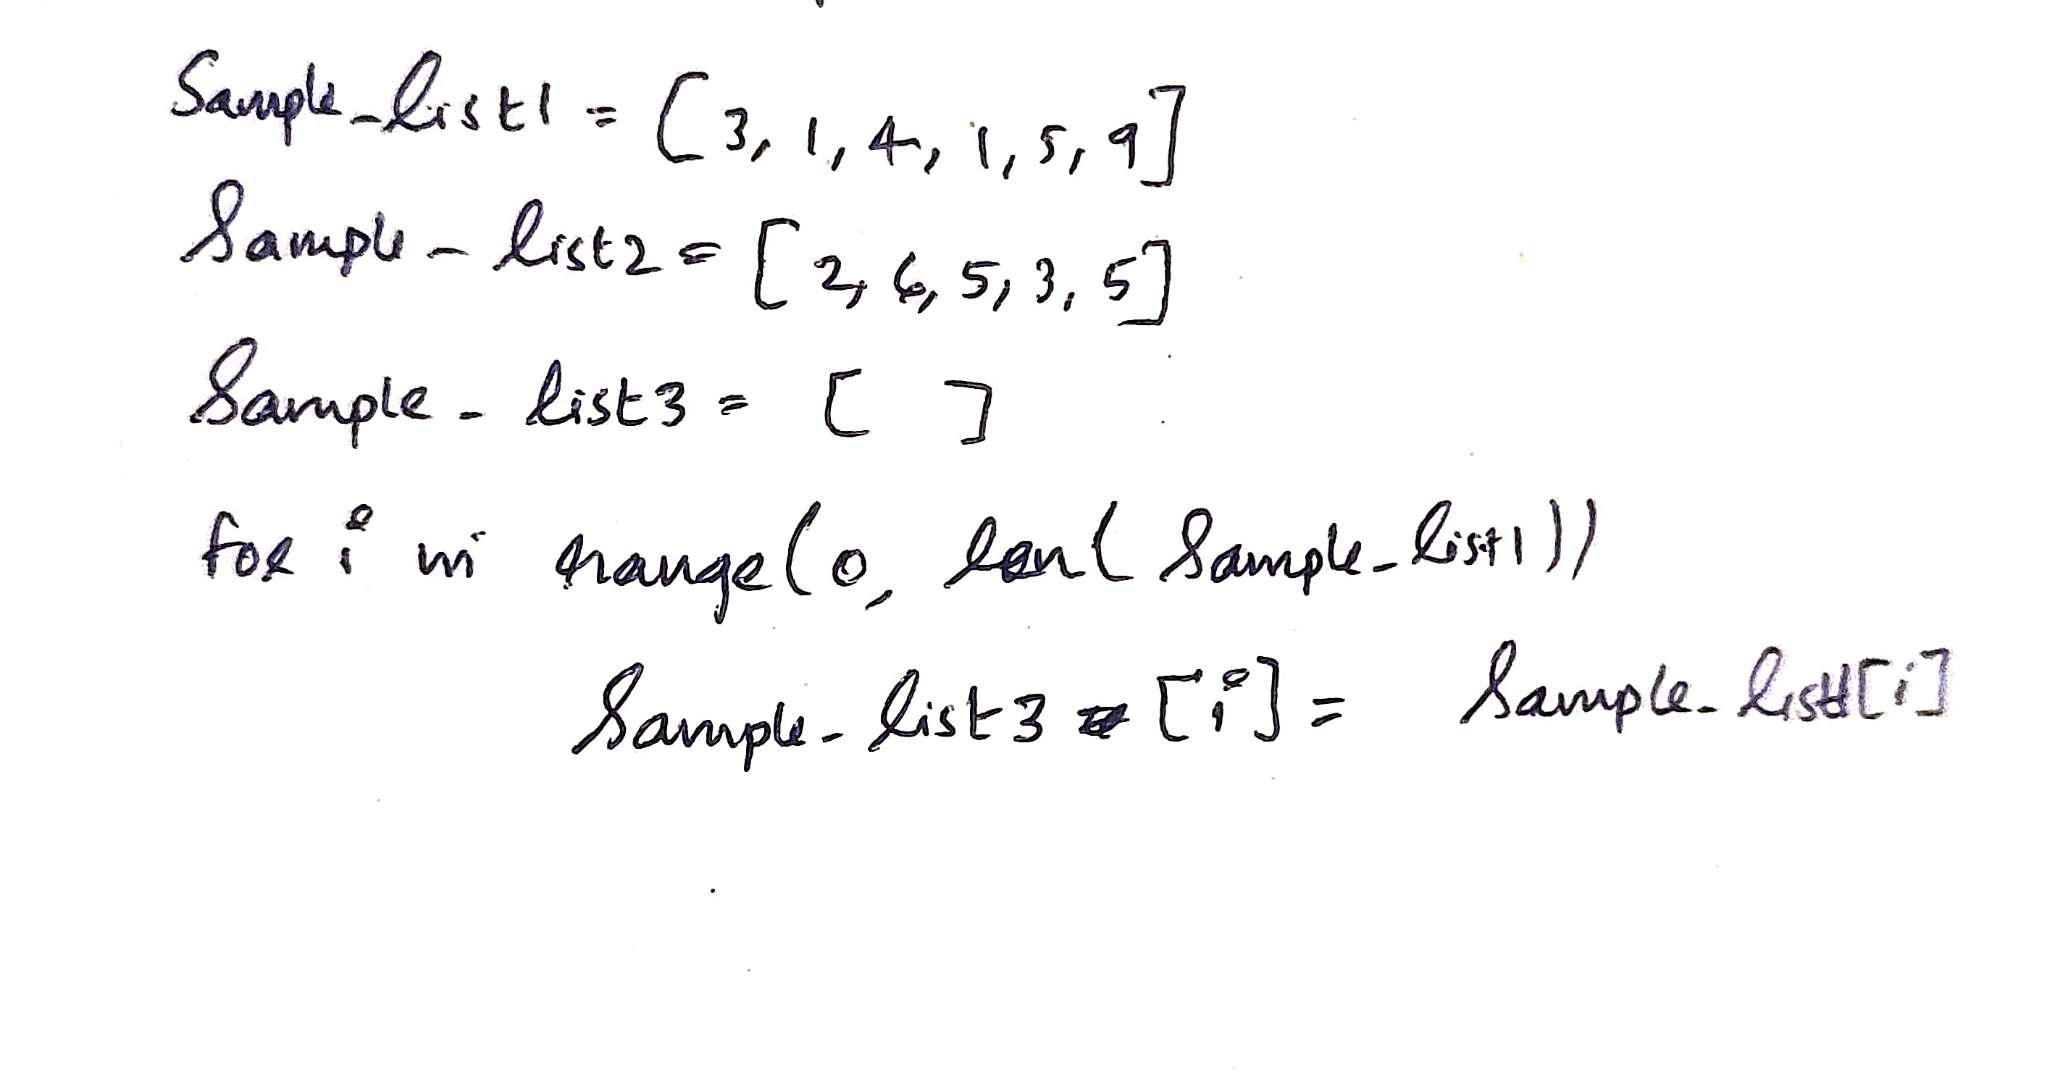 Sample_list1 = [3, 1, 4, 1, 5, 9]
Sample_list2 = [2, 6, 5, 3, 5]
Sample_list3 = [ ]
for i in range(0, len(Sample_list1))
Sample_list3[i] = Sample_list1[i]